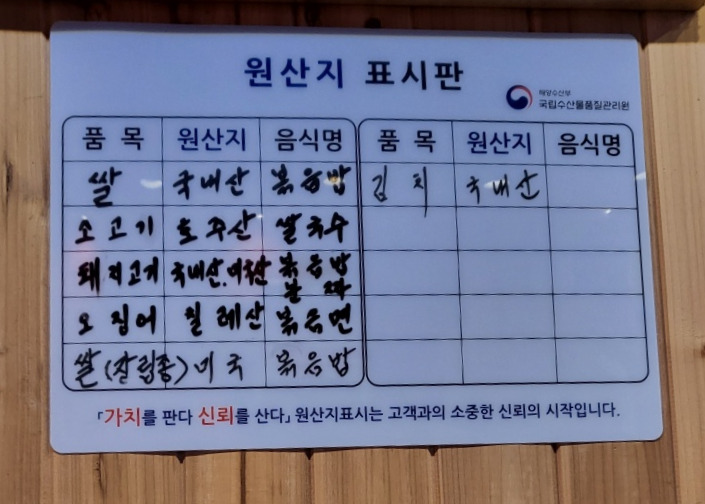 원산지 표시판
해양수산부
국립수산물품질관리원
품 목 원산지 음식명 품 목 원산지 음식명
쌀 국내산 볶음밥 김치 국내산
소고기 호주산 쌀국수
돼지고기 국내산.미국산 볶음밥
오징어 칠레산 볶음면
쌀(장립종) 미국 볶음밥
「가치를 판다 신뢰를 산다」 원산지표시는 고객과의 소중한 신뢰의 시작입니다.